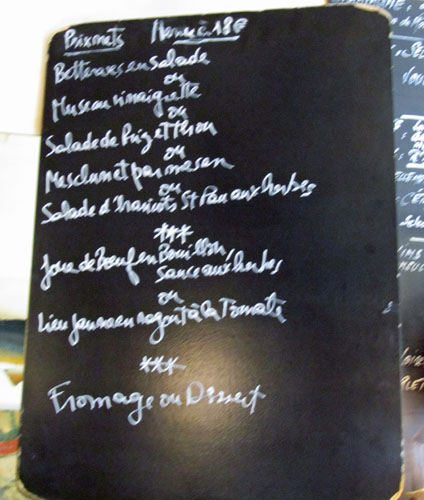 Prix nets Menu à 18€
Betteraves en salade
ou
Museau vinaigrette
ou
Salade de Riz et Thon
ou
Mesclun et parmesan
ou
Salade d'Haricots St Pau aux herbes
***
Joue de Boeuf en Bouillon
Sauce aux herbes
ou
Lieu jaune en ragoût à la Tomate
***
Fromage ou Dessert